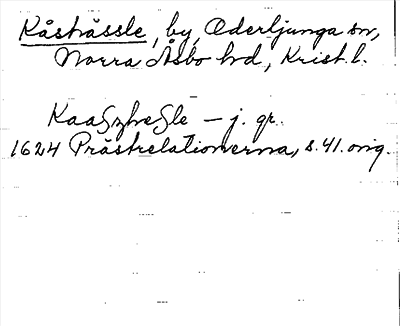 Kåshässle, by, Oderljunga sn,
Norra Åsbo hd., Krist. l.
KaaSzheSle – j. gr.
1624 Prästrelationerna, s. 41. orig.